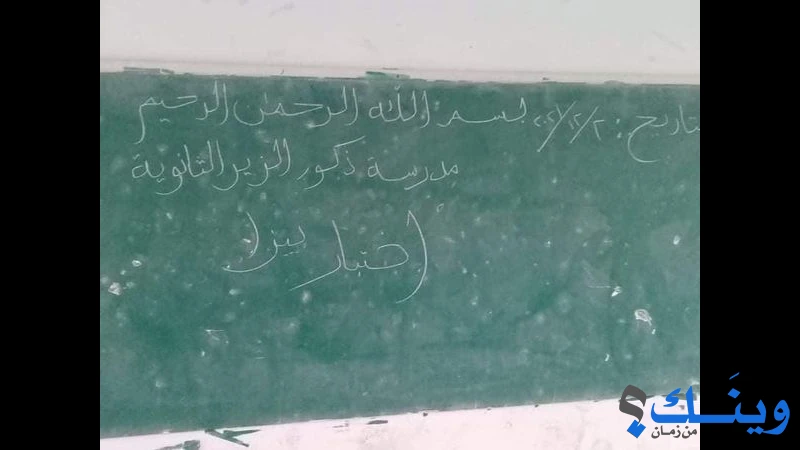 تاريخ: بسم الله الرحمن الرحيم
مدرسة ذكور الزير الثانوية
اختبار بيزا
وينك؟
من زمان